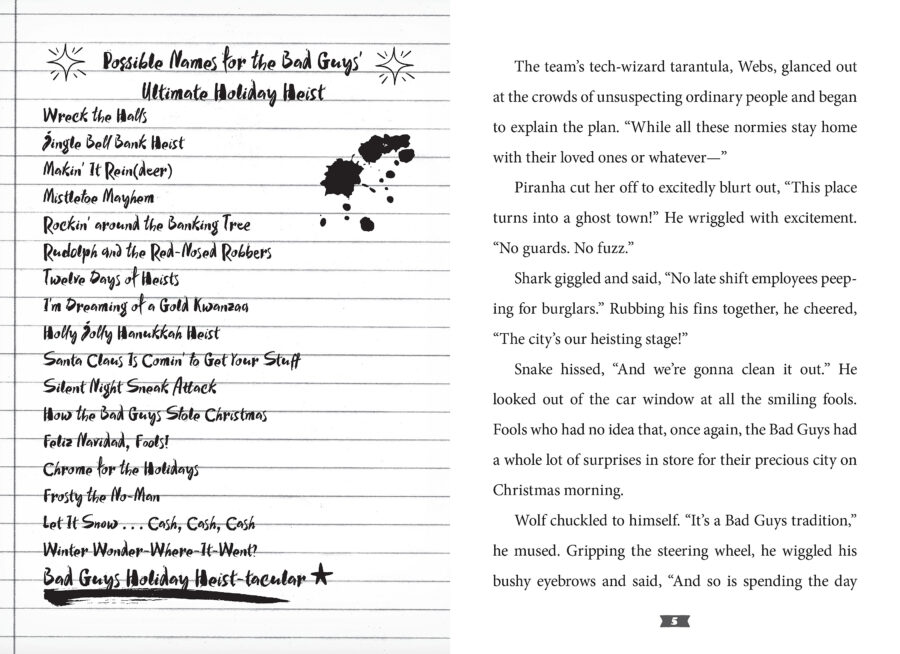 Possible Names for the Bad Guys'
Ultimate Holiday Heist
Wreck the Halls
Jingle Bell Bank Heist
Makin' It Rein(deer)
Mistletoe Mayhem
Rockin' around the Banking Tree
Rudolph and the Red-Nosed Robbers
Twelve Days of Heists
I'm Dreaming of a Gold Kwanzaa
Holly Jolly Hanukkah Heist
Santa Claus Is Comin' to Get Your Stuff
Silent Night Sneak Attack
How the Bad Guys Stole Christmas
Feliz Navidad, Fools!
Chrome for the Holidays
Frosty the No-Man
Let It Snow . . . Cash, Cash, Cash
Winter Wonder-Where-It-Went?
Bad Guys Holiday Heist-tacular
The team's tech-wizard tarantula, Webs, glanced out
at the crowds of unsuspecting ordinary people and began
to explain the plan. “While all these normies stay home
with their loved ones or whatever—”
Piranha cut her off to excitedly blurt out, “This place
turns into a ghost town!” He wriggled with excitement.
“No guards. No fuzz.”
Shark giggled and said, “No late shift employees peep-
ing for burglars.” Rubbing his fins together, he cheered,
“The city's our heisting stage!”
Snake hissed, “And we're gonna clean it out.” He
looked out of the car window at all the smiling fools.
Fools who had no idea that, once again, the Bad Guys had
a whole lot of surprises in store for their precious city on
Christmas morning.
Wolf chuckled to himself. “It's a Bad Guys tradition,”
he mused. Gripping the steering wheel, he wiggled his
bushy eyebrows and said, “And so is spending the day
5